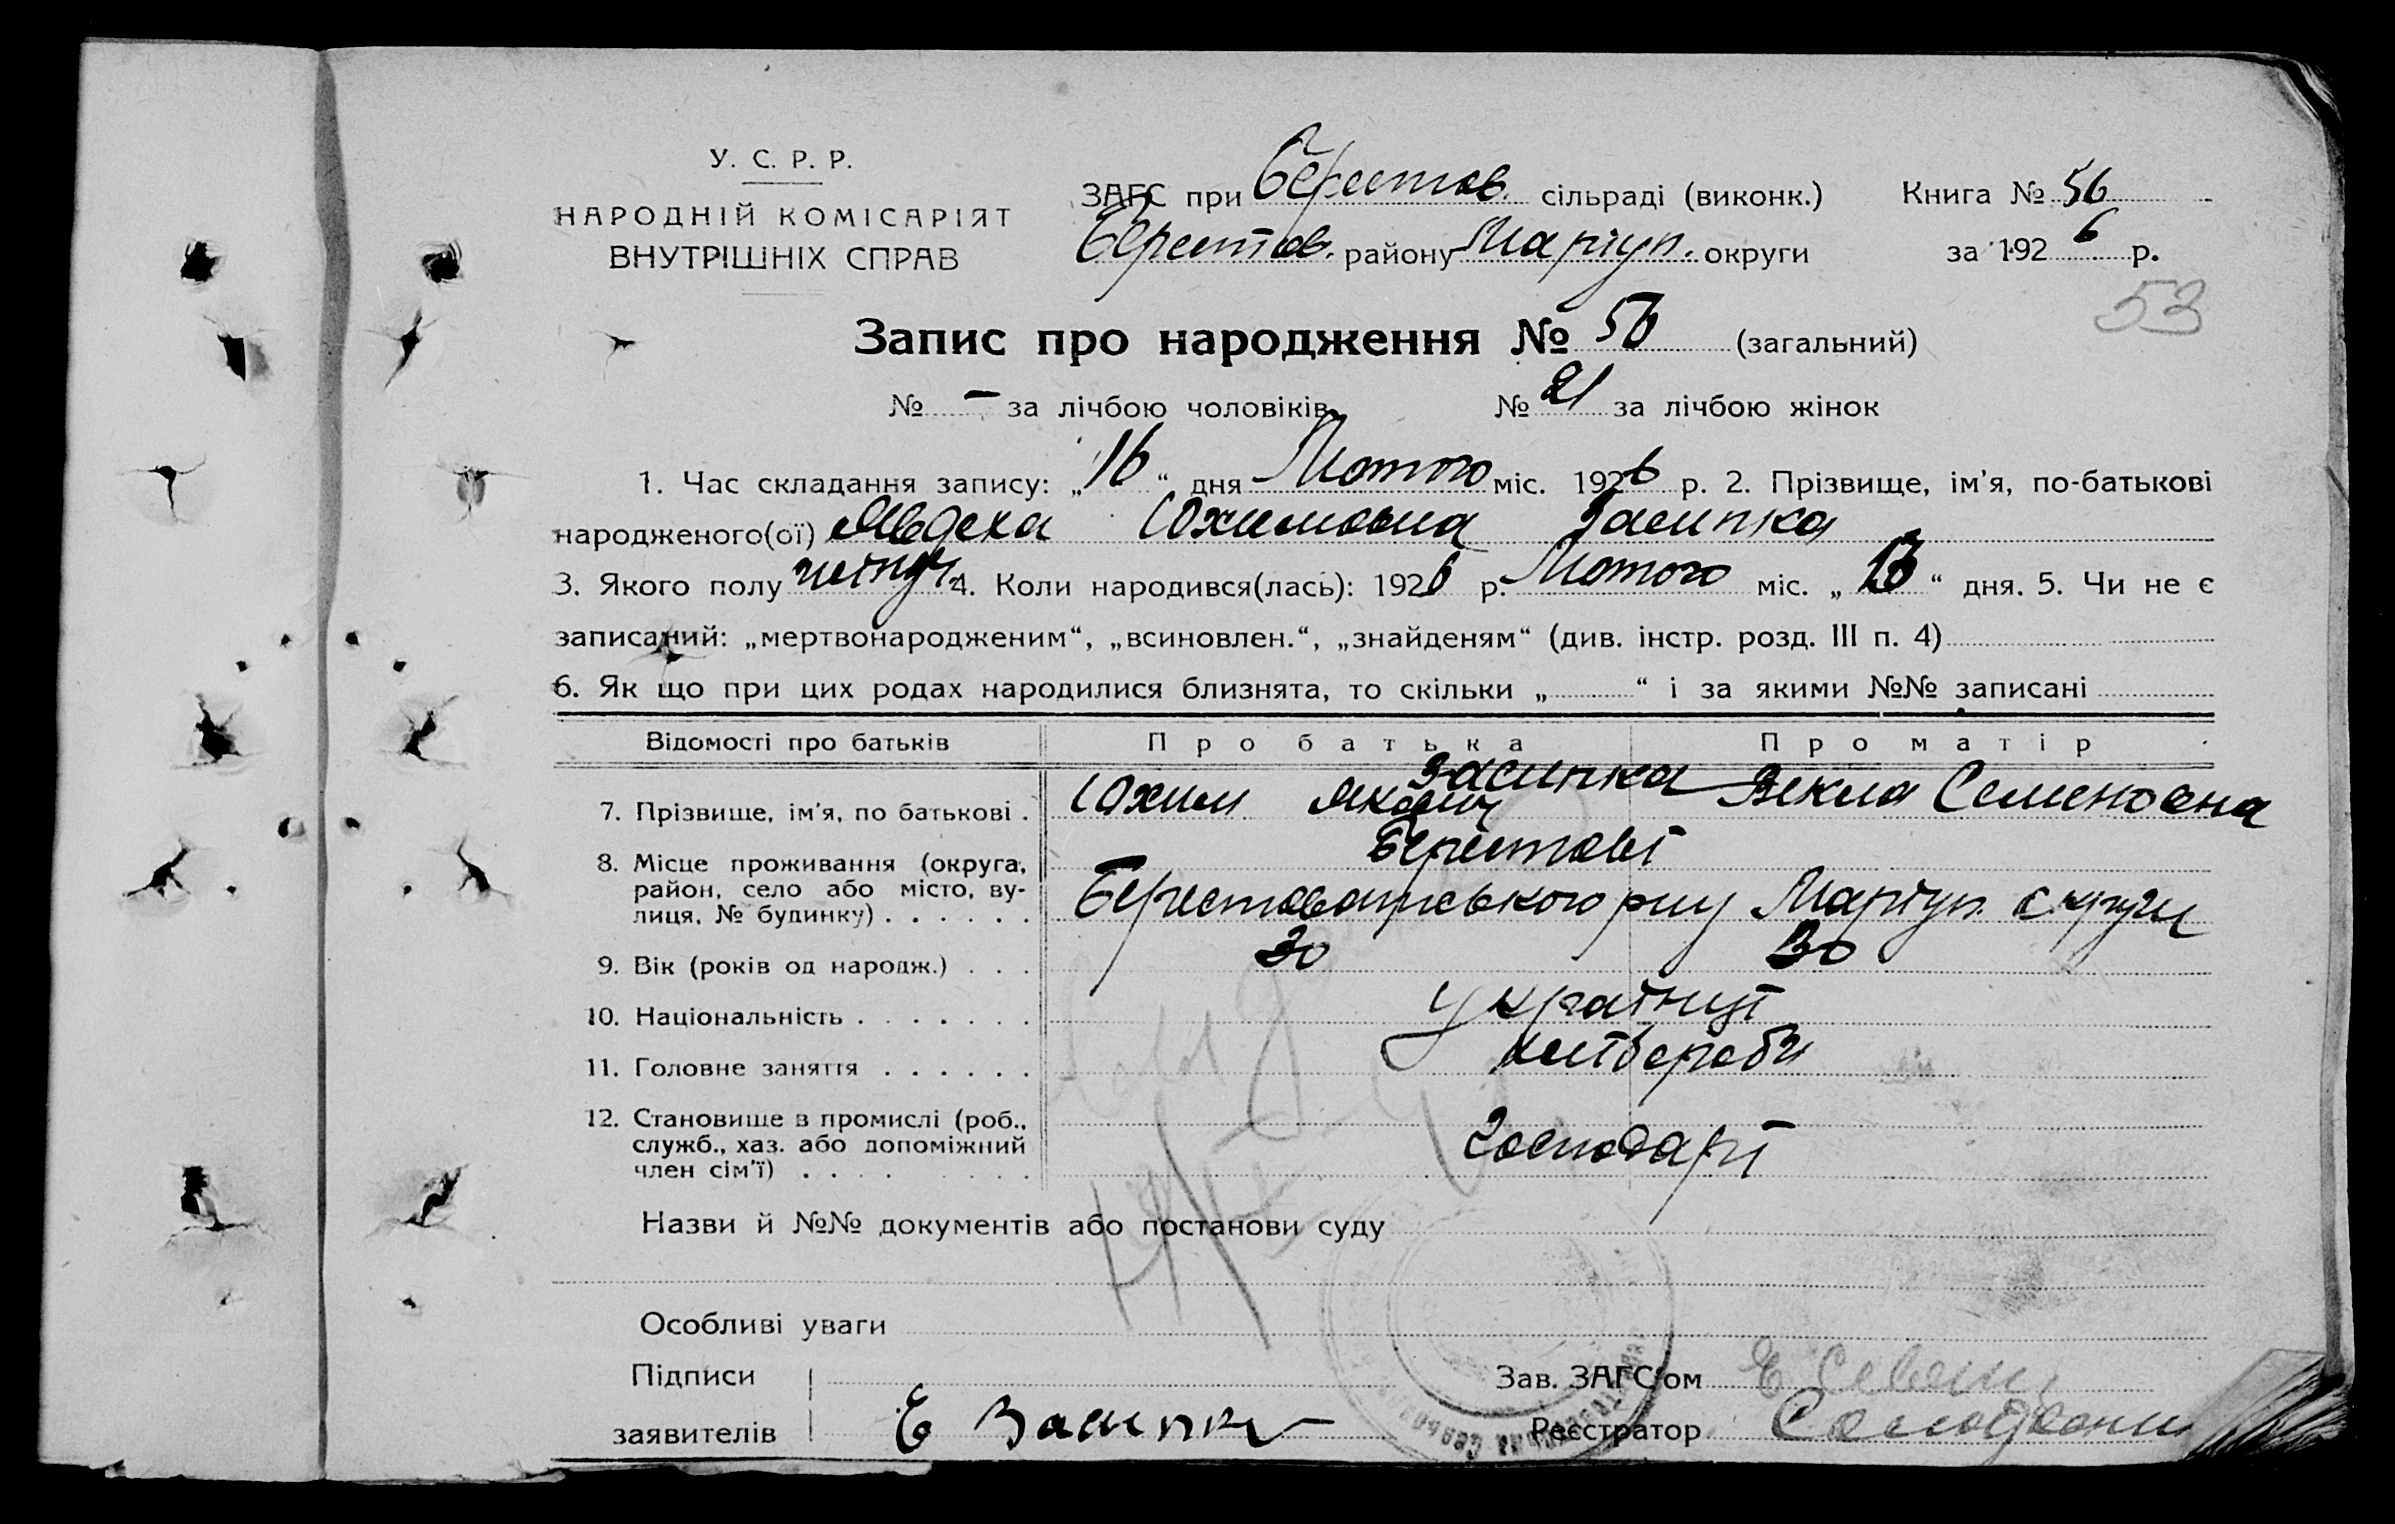 У. С. Р. Р.
НАРОДНІЙ КОМІСАРІЯТ
ВНУТРІШНІХ СПРАВ
ЗАГС при Берестов. сільраді (виконк.) Книга № 56
Берестов. району Маріуп. округи за 1926 р.
53
Запис про народження № 56 (загальний)
№ – за лічбою чоловіків № 21 за лічбою жінок
1. Час складання запису: „16“ дня Лютого міс. 1926 р. 2. Прізвище, ім'я, по-батькові
народженого(ої) Явдоха Юхимовна Засипка
3. Якого полу жіноч. 4. Коли народився(лась): 1926 р. Лютого міс. „13“ дня. 5. Чи не є
записаний: „мертвонародженим“, „всиновлен.“, „знайденям“ (див. інстр. розд. III п. 4)
6. Як що при цих родах народилися близнята, то скільки „ “ і за якими №№ записані
Відомості про батьків Про батька Про матір
Засипка
7. Прізвище, ім'я, по батькові . Юхим Якович Векла Семеновна
Берестові
8. Місце проживання (округа, район, село або місто, вулиця, № будинку) . . . . . . Берестоватського р-ну Маріуп. округи
9. Вік (років од народж.) . . . 30 30
10. Національність . . . . . . . українці
11. Головне заняття . . . . . . хлібороби
12. Становище в промислі (роб., служб., хаз. або допоміжний член сім'ї) . . . . господарі
Назви й №№ документів або постанови суду
Особливі уваги
Підписи
заявителів Е Засипка
Зав. ЗАГС'ом
Реєстратор